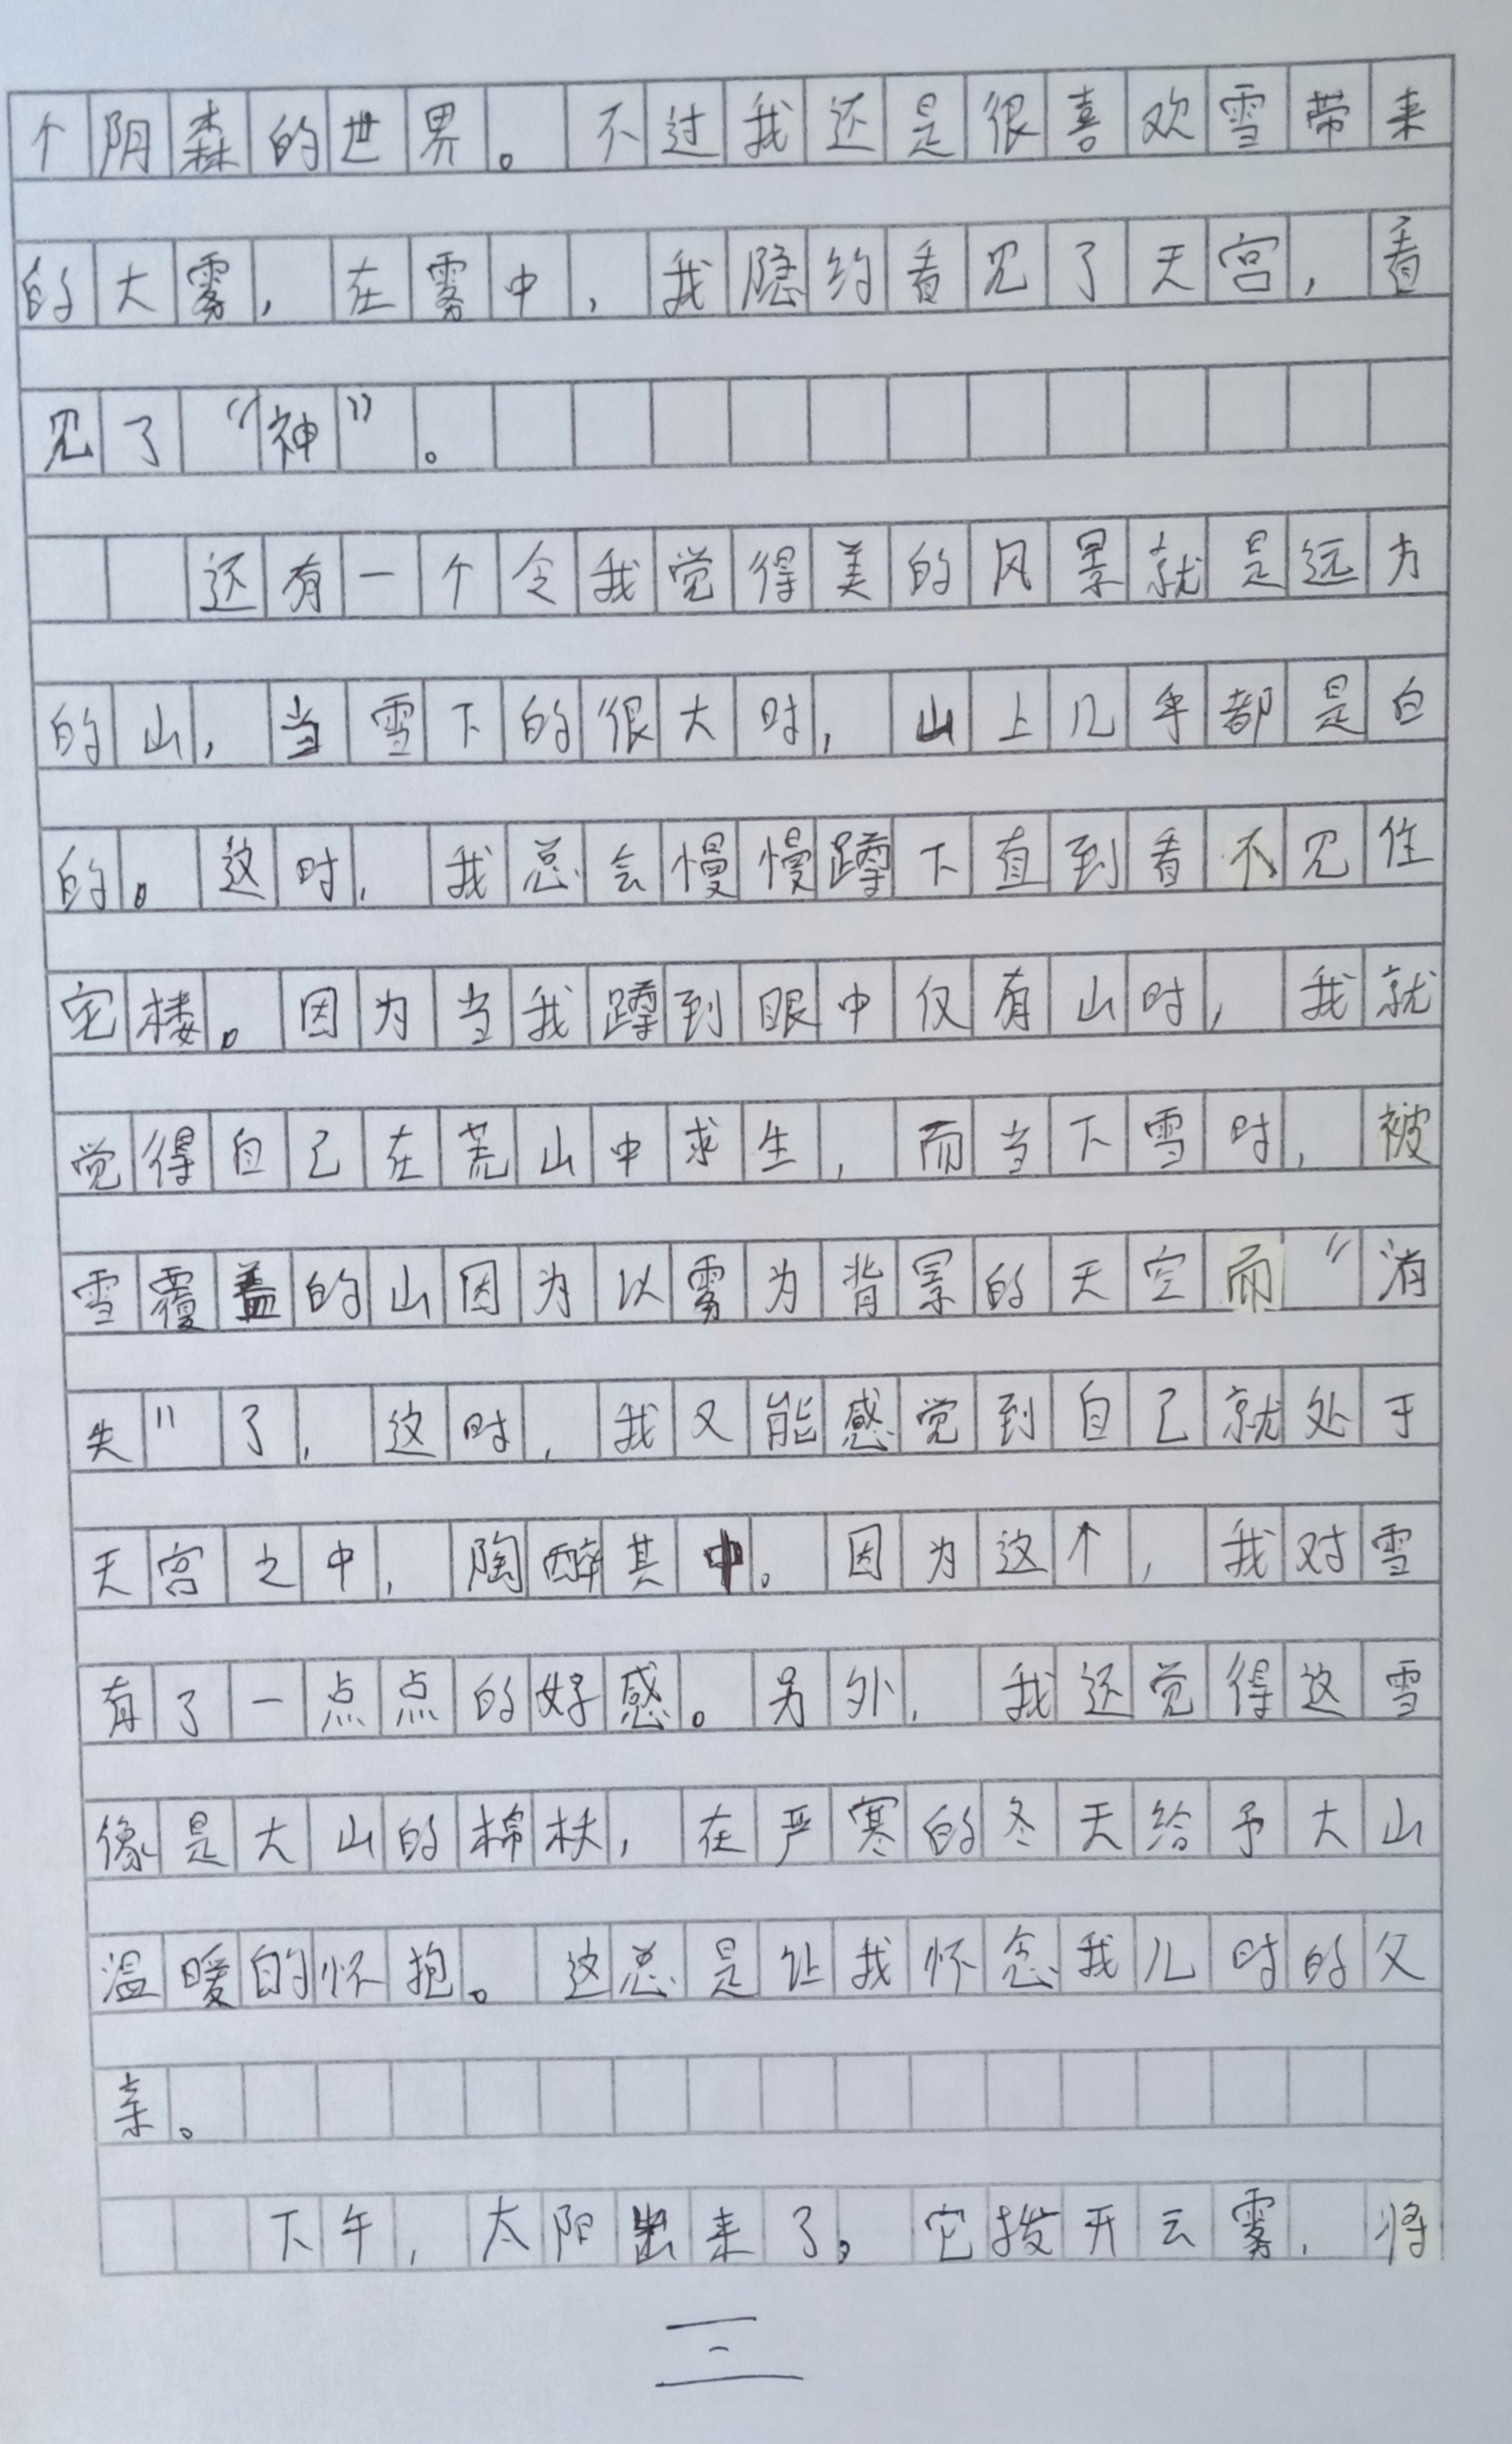 个阴森的世界。不过我还是很喜欢雪带来
的大雾,在雾中,我隐约看见了天宫,看
见了“神”。
还有一个令我觉得美的风景就是远方
的山,当雪下的很大时,山上几乎都是白
的。这时,我总会慢慢蹲下直到看不见住
宅楼。因为当我蹲到眼中仅有山时,我就
觉得自己在荒山中求生,而当下雪时,被
雪覆盖的山因为以雾为背景的天空而“消
失”了,这时,我又能感觉到自己就处于
天宫之中,陶醉其中。因为这个,我对雪
有了一点点的好感。另外,我还觉得这雪
像是大山的棉袄,在严寒的冬天给予大山
温暖的怀抱。这总是让我怀念我儿时的父
亲。
下午,太阳出来了。它拨开云雾,将
三